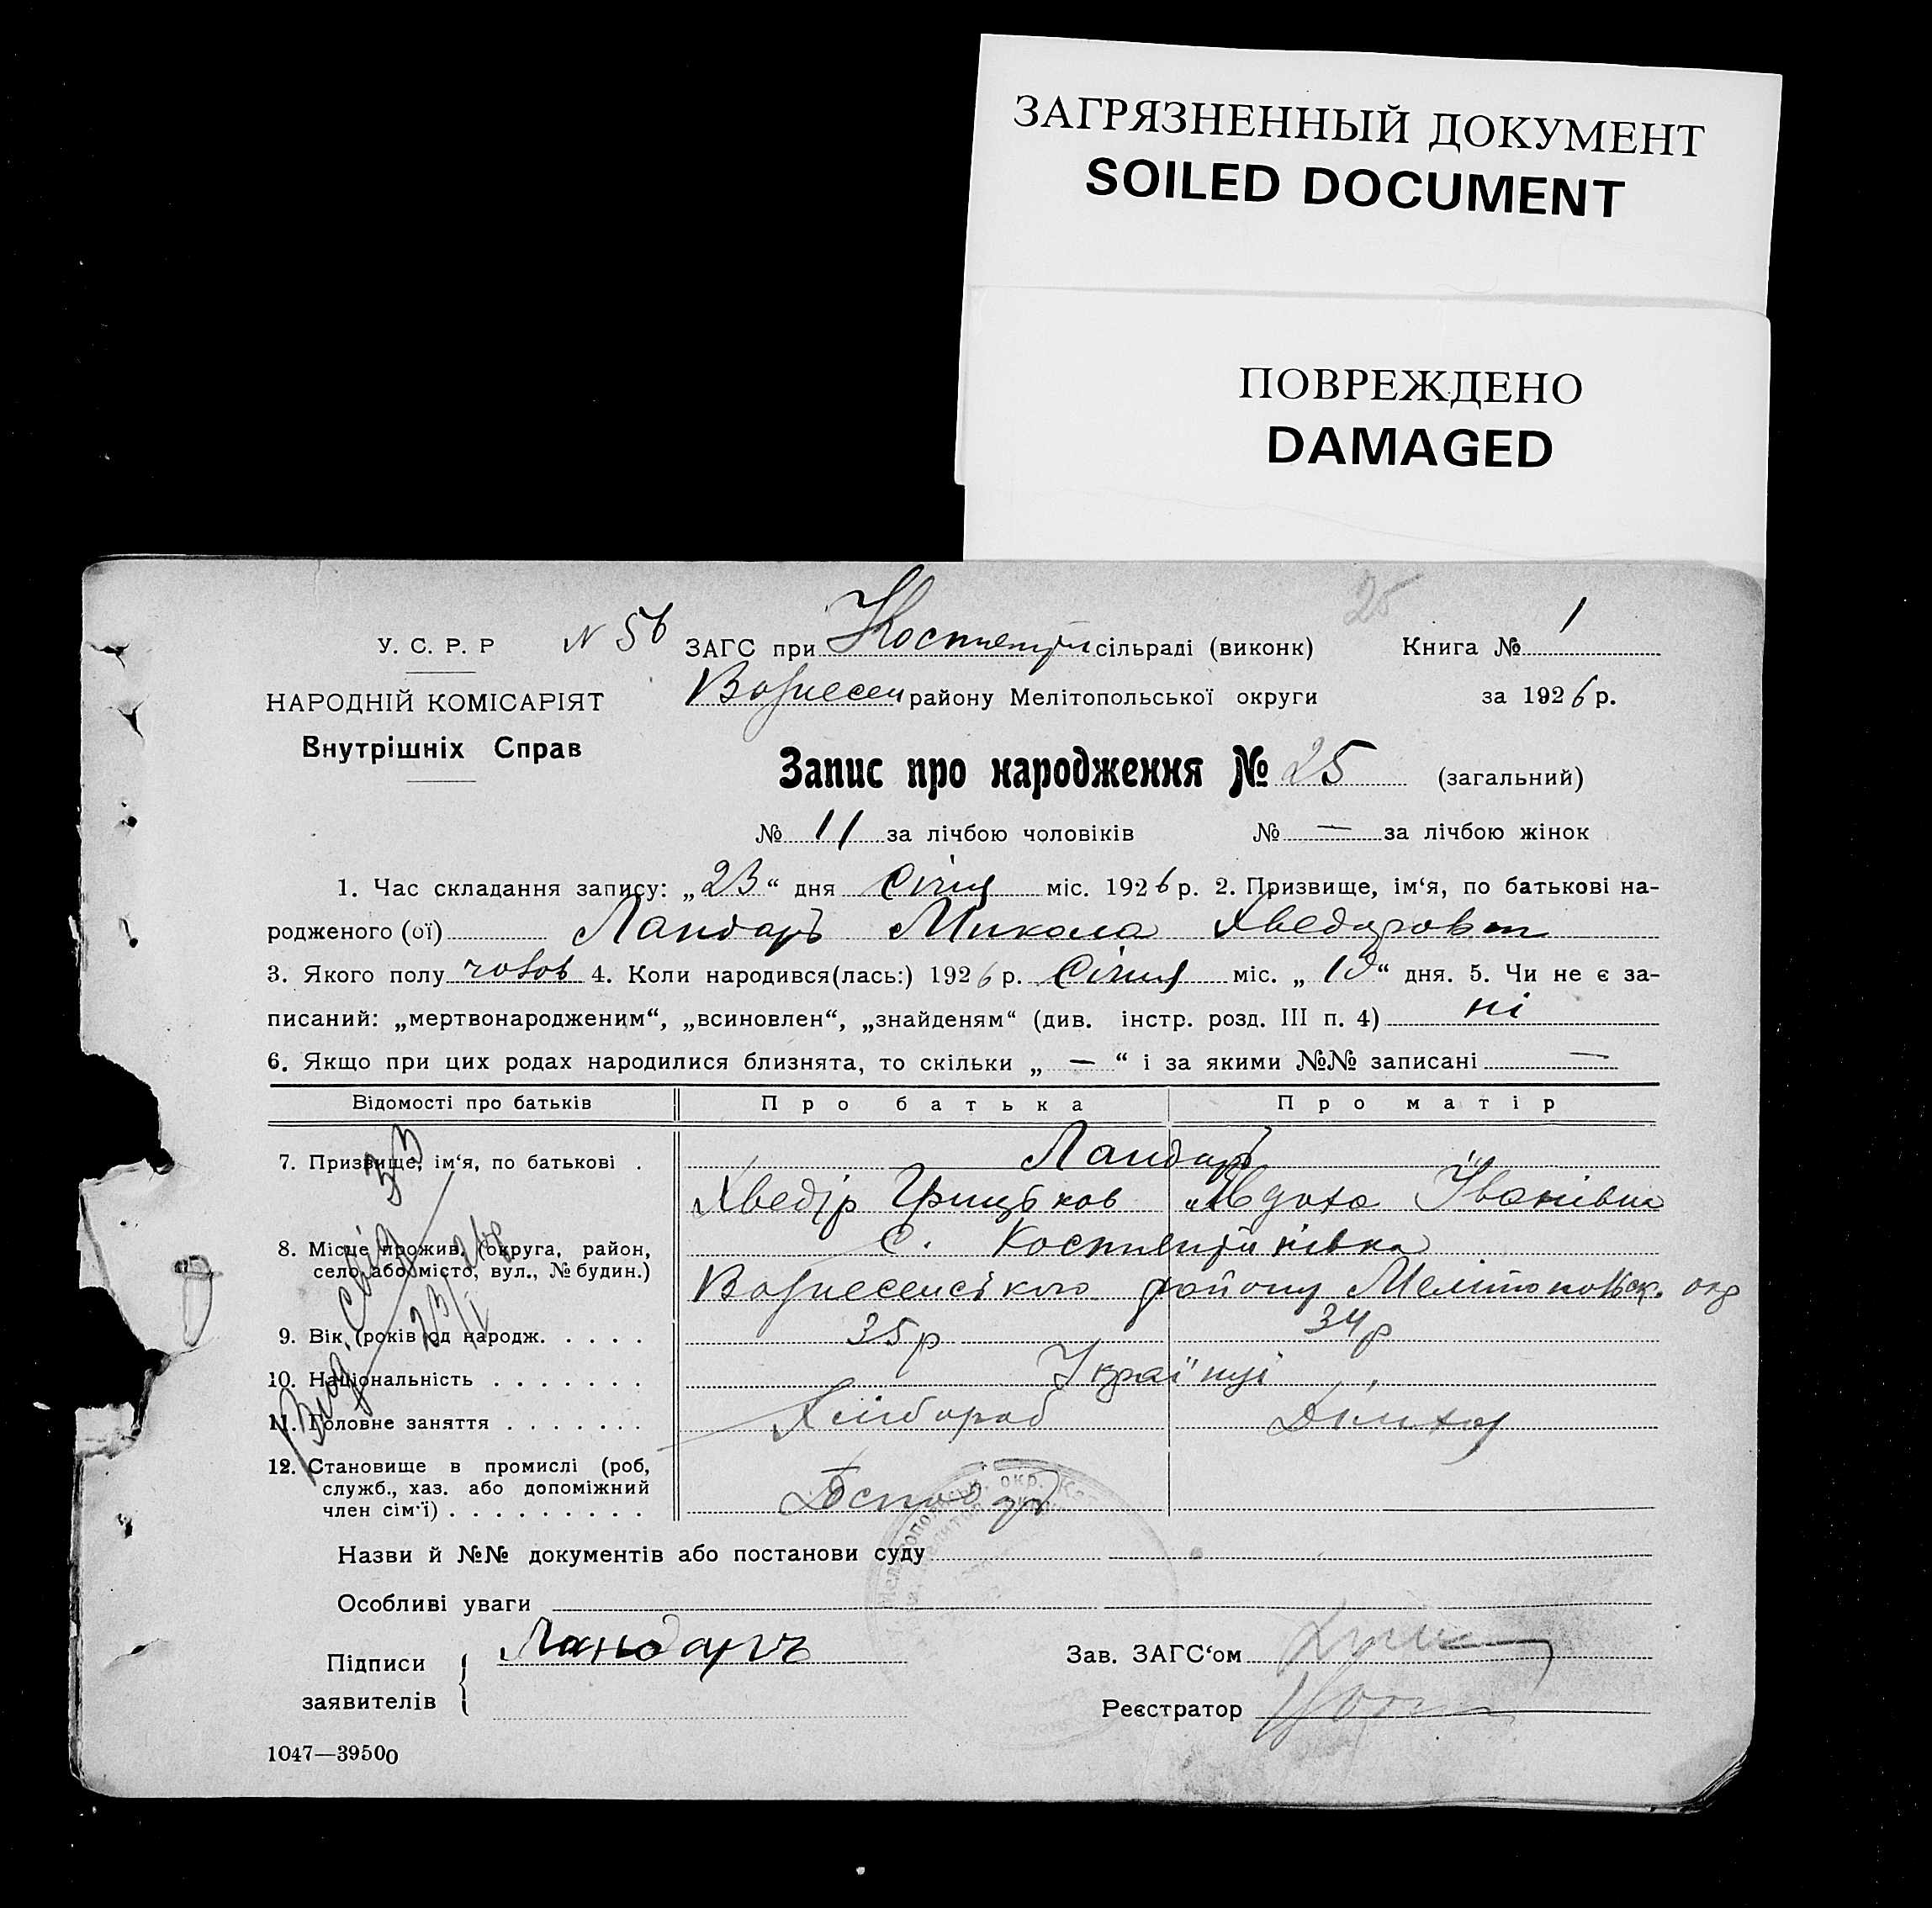 ЗАГРЯЗНЕННЫЙ ДОКУМЕНТ
SOILED DOCUMENT
ПОВРЕЖДЕНО
DAMAGED
25
У. С. Р. Р N 56 ЗАГС при Костянтин сільраді (виконк) Книга № 1
НАРОДНІЙ КОМІСАРІЯТ Вознесен району Мелітопольської округи за 1926 р.
Внутрішніх Справ
Запис про народження № 25 (загальний)
№ 11 за лічбою чоловіків № — за лічбою жінок
1. Час складання запису: „23“ дня Січня міс. 1926 р. 2. Призвище, ім‘я, по батькові на-
родженого (ої) Ландаръ Микола Хведоров
3. Якого полу чолов 4. Коли народився(лась:) 1926 р. Січня міс. „19“ дня. 5. Чи не є за-
писаний: „мертвонародженим“, „всиновлен“, „знайденям“ (див. інстр. розд. III п. 4) ні
6. Якщо при цих родах народилися близнята, то скільки „ — “ і за якими №№ записані —
Відомості про батьків Про батька Про матір
7. Призвище, ім‘я, по батькові . Ландаръ
Хведір Грицьков Явдоха Іванівна
8. Місце прожив. (округа, район, с. Костянтинівка
село або місто, вул., № будин.) Вознесенського району Мелітопольск. окр
9. Вік (років од народж. . . . . 35 р 34 р
10. Національність . . . . . . . Українці
11. Головне заняття . . . . . . . Хлібороб
12. Становище в промислі (роб,
служб., хаз. або допоміжний Господар
член сім‘ї) . . . . . . . . . .
Вид. свід 33
23/I 26 р
Назви й №№ документів або постанови суду
Особливі уваги
Підписи Ландарь Зав. ЗАГС‘ом
заявителів Реєстратор
1047—39500